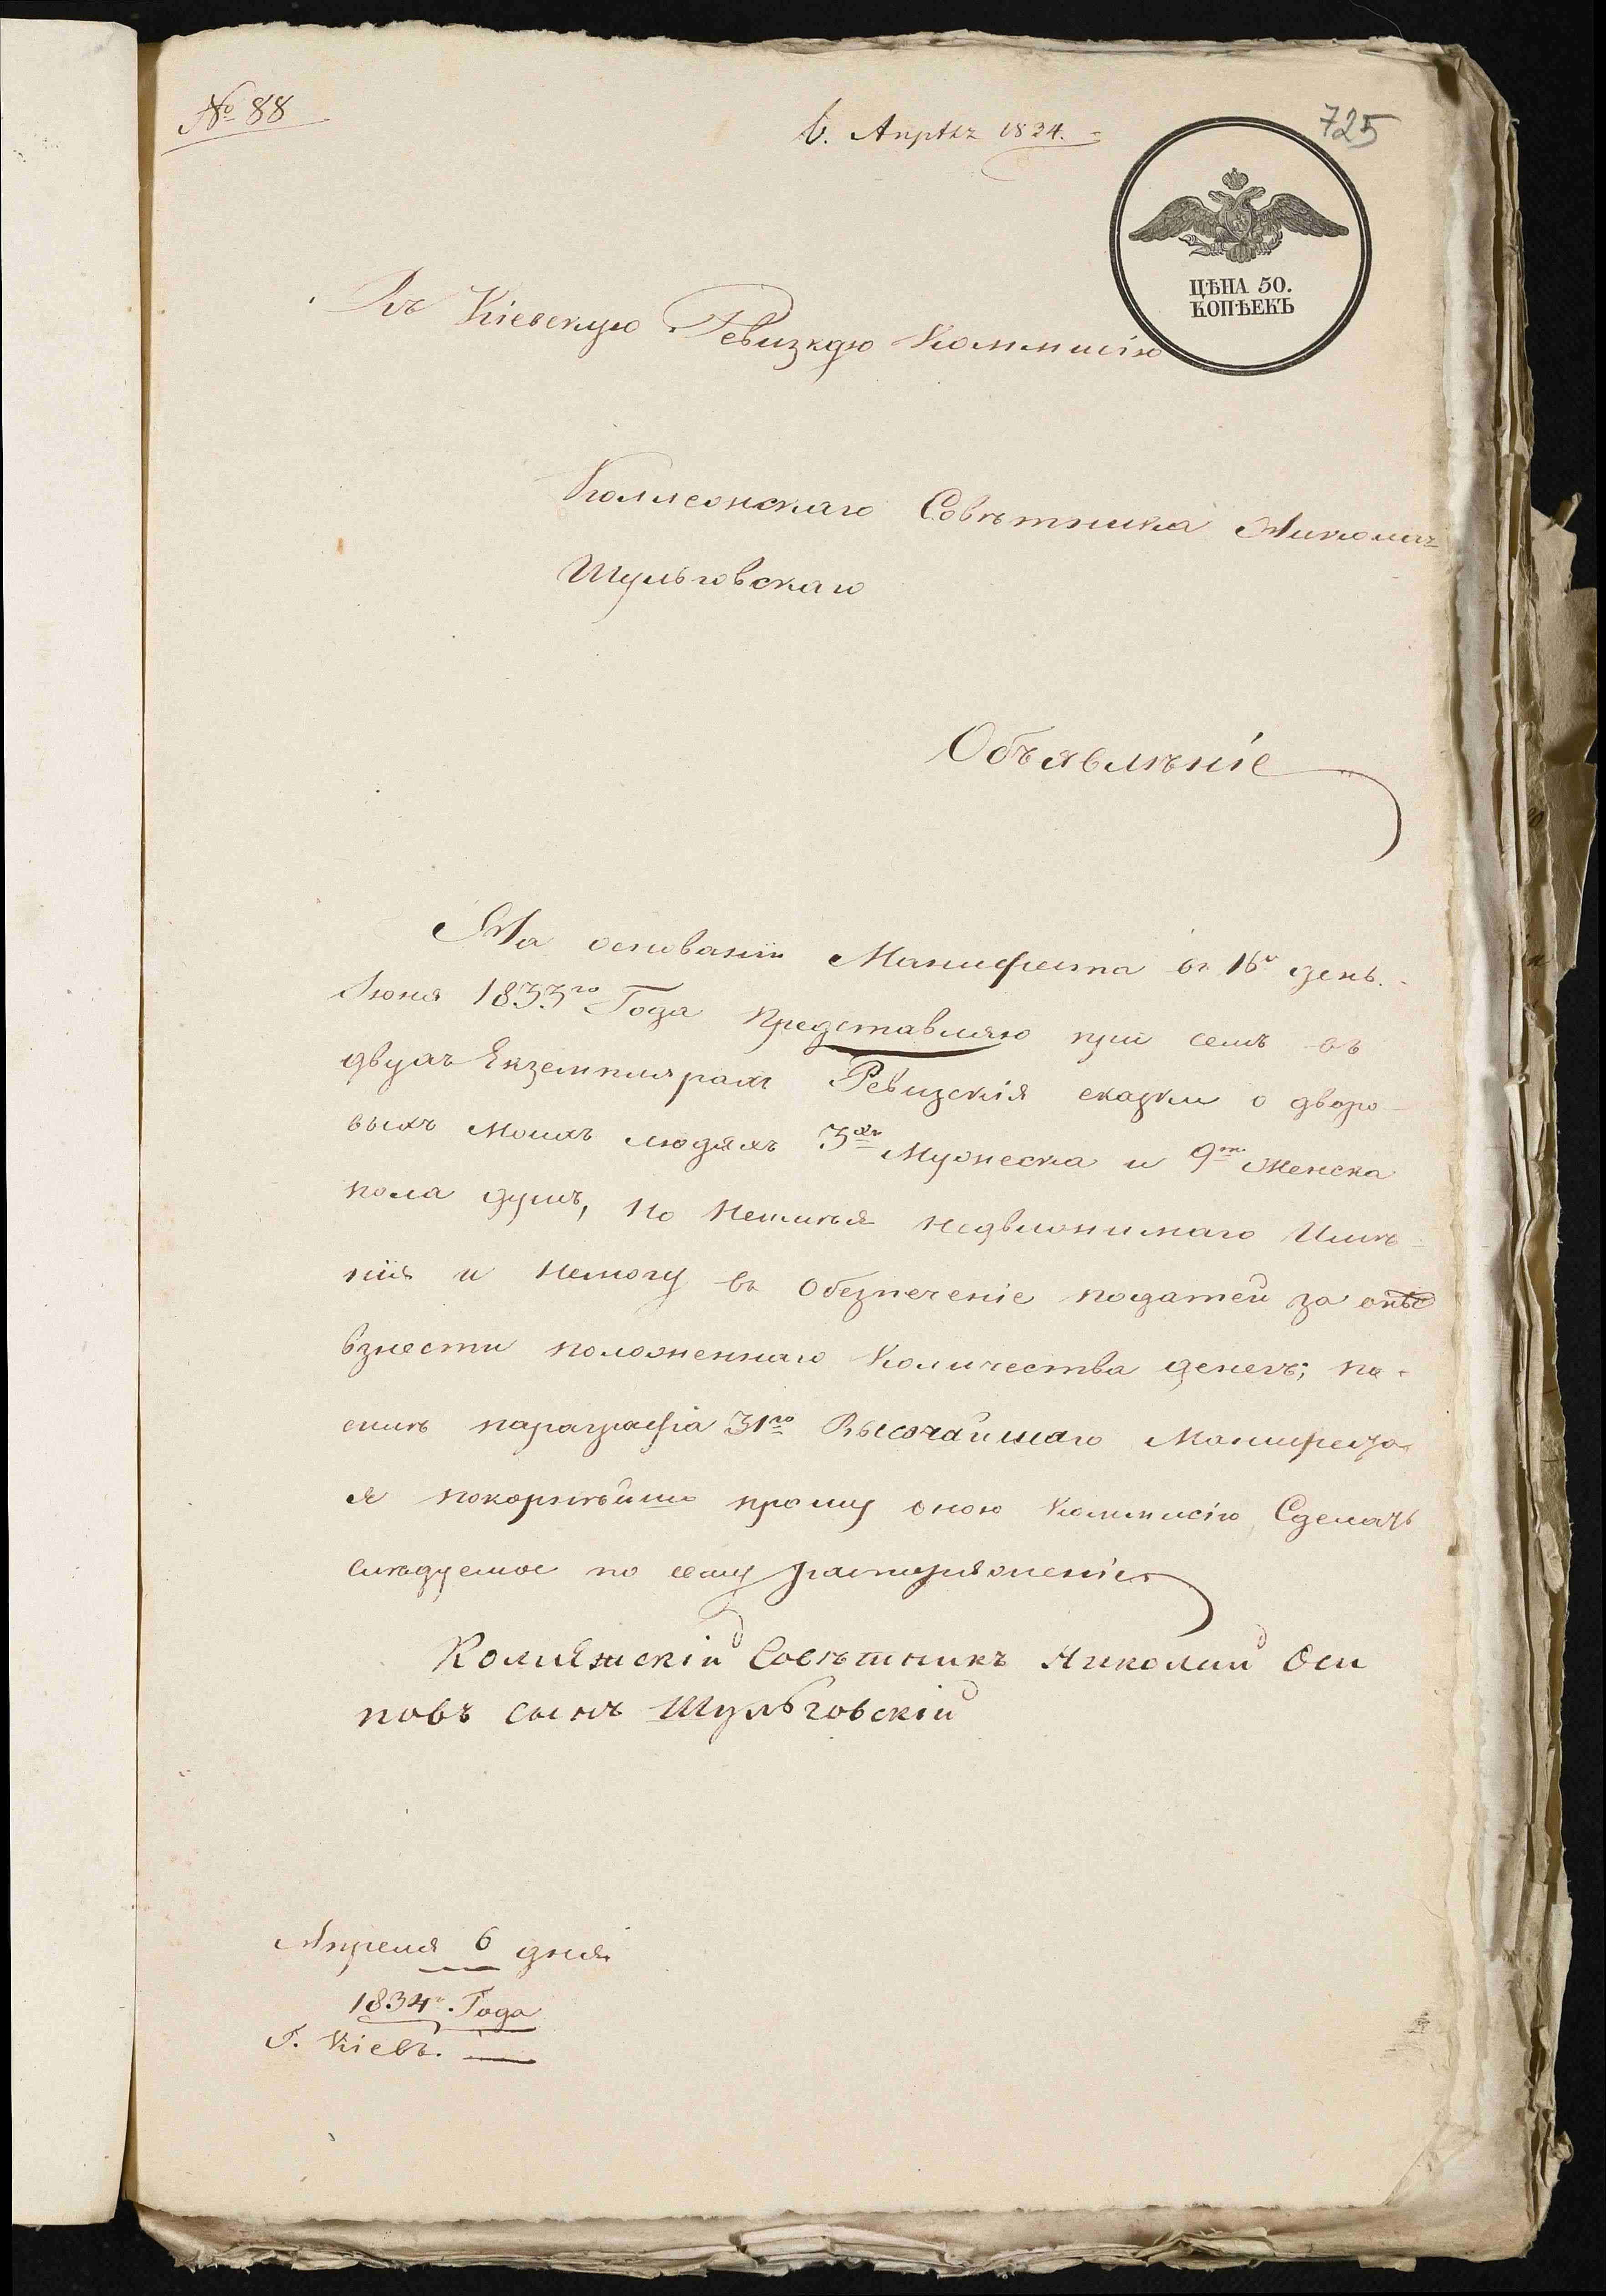 № 88
6. Апрѣля 1834.
725
ЦѢНА 50.
КОПѢЕКЪ
Въ Кіевскую Ревизкую Коммисію
Коллежскаго Совѣтника Николая
Шульговскаго
Объявлѣніе
На основаніи Манифеста въ 16й день.
Іюня 1833го Года представляю при семъ въ
двухъ Екземплярахъ Ревизскія сказки о дворо-
выхъ моихъ людяхъ 3хъ Мужеска и 9ти Женска
пола душъ, но неимѣя недвижимаго Имѣ-
нія и немогу въ Обезпеченіе податей за оныѣ
взнести положеннаго Количества денегъ; по-
силѣ параграфа 31го Высочайшаго Манифеста
я покорнѣйше прошу оною Коммисію Сделать
слѣдуемое по сему распоряженіе
Коллежскій Совѣтникъ Николай Оси
повъ сынъ Шульговскій
Апреля 6 дня
1834го Года
Г. Кіевъ.